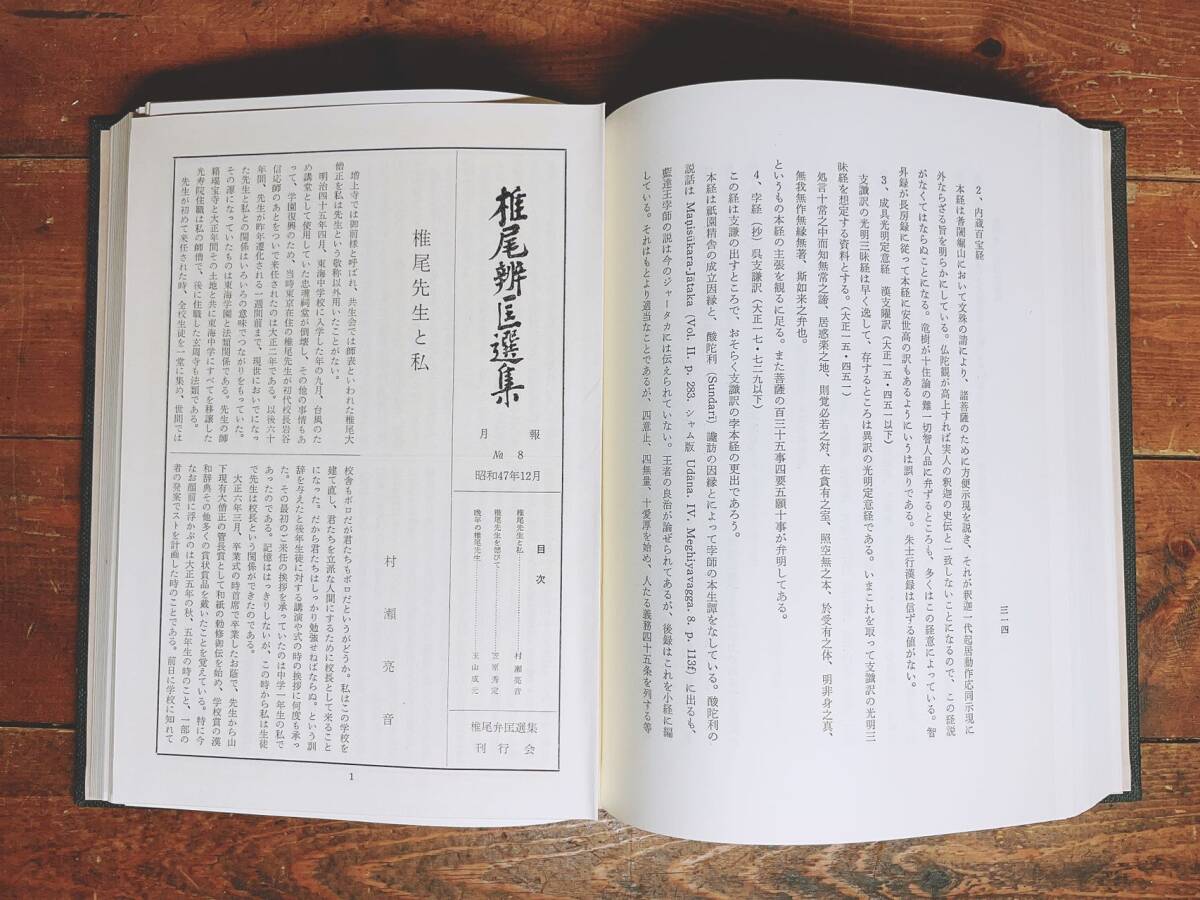 三一四
2、内蔵百宝経
本経は耆闍崛山において文殊の請により、諸菩薩のために方便示現を説き、それが釈迦一代起居動作応同示現に
外ならざる旨を明らかにしている。仏陀観が高上すれば実人の釈迦の史伝と一致しないことになるので、この経説
がなくてはならぬことになる。竜樹が十住論の難一切智人品に弁ずるところも、多くはこの経意によっている。智
昇録が長房録に従って本経に安世高の訳もあるようにいうは誤りである。朱士行漢録は信ずる値がない。
3、成具光明定意経 漢支曜訳(大正一五・四五一以下)
支讖訳の光明三昧経は早く逸して、存するところは異訳の光明定意経である。いまこれを取って支讖訳の光明三
昧経を想定する資料とする。(大正一五・四五一)
処言十常之中而知無常之諦、居惑楽之地、則覚必若之対、在貪有之室、照空無之本、於受有之体、明非身之真、
無我無作無縁無著、斯如来之弁也。
というもの本経の主張を観るに足る。また菩薩の百三十五事四要五願十事が弁明してある。
4、孛経(抄)呉支謙訳(大正一七・七二九以下)
この経は支謙の出すところで、おそらく支讖訳の孛本経の更出であろう。
本経は祇園精舎の成立因縁と、酸陀利(Sundarī)讒訪の因縁とによって孛師の本生譚をなしている。酸陀利の
説話は Maṇisūkara-Jātaka (Vol. II. p. 283. シャム版 Udāna. IV. Meghiyavagga. 8. p. 113f) に出るも、
藍達王孛師の説は今のジャータカには伝えられていない。王者の良治が論ぜられてあるが、後録はこれを小経に編
している。それはもとより適当なことであるが、四意止、四無量、十愛厚を始め、人たる義務四十五条を列する等
椎尾辨匡選集
月報
№ 8
昭和47年12月
目次
椎尾先生と私……村瀬亮音
椎尾先生を偲びて……笠原秀定
晩年の椎尾先生……玉山成元
椎尾弁匡選集
刊行会
椎尾先生と私
村瀬亮音
増上寺では御前様と呼ばれ、共生会では師表といわれた椎尾大
僧正を私は先生という敬称以外用いたことがない。
明治四十五年四月、東海中学校に入学した年の九月、台風のた
め講堂として使用していた忠魂祠堂が倒壊し、その他の事情もあ
って、学園復興のため、当時東京在住の椎尾先生が初代校長岩谷
信応師のあとをついで来任されたのは大正二年である。以後六十
年間、先生が昨年遷化される一週間前まで、現世においでになっ
た先生と私との関係はいろいろの意味でつながりをもっていた。
その源になっていたものは東海学園と法類関係である。先生の師
籍場宝寺と大正年間その土地と共に東海中学にすべてを移譲した
光寿院住職は私の師僧で、後に住職した玄周寺も法類である。
先生が初めて来任された時、全校生徒を一堂に集め、世間では
校舎もボロだが君たちもボロだというがどうか。私はこの学校を
建て直し、君たちを立派な人間にするために校長として来ること
になった。だから君たちはしっかり勉強せねばならぬ。という訓
辞を与えたと後年生徒に対する講演や式の時の挨拶に何度も承っ
た。その最初のご来任の挨拶を承っていたのは中学一年生の私で
あったのである。記憶ははっきりしないが、この時から私は生徒
で先生は校長という関係ができたのである。
大正六年三月、卒業式の時首席で卒業したお蔭で、先生から山
下現有大僧正の管長賞として和紙の勅修御伝を始め、学校賞の漢
和辞典その他多くの賞状賞品を戴いたことを覚えている。特に今
なお眼前に浮かぶのは大正五年の秋、五年生の時のこと、一部の
者の発案でストを計画した時のことである。前日に学校に知れて
1